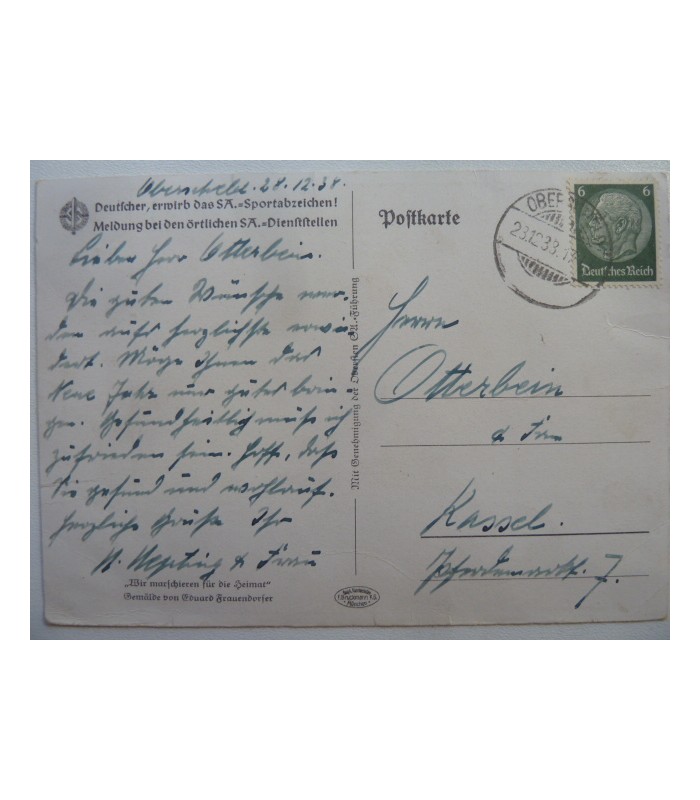 Oberscheld. 28.12.38.
Deutscher, erwirb das SA.=Sportabzeichen!
Meldung bei den örtlichen SA.=Dienststellen
Lieber Herr Otterbein.
Die guten Wünsche wer-
den aufs herzlichste erwi-
dert. Möge Ihnen das
Neue Jahr nur gutes brin-
gen. Gesundheitlich muß ich
zufrieden sein. Hoffe, daß
Sie gesund und wohlauf.
Herzliche Grüße Ihr
& Frau
„Wir marschieren für die Heimat“
Gemälde von Eduard Frauendorfer
Mit Genehmigung der Obersten SA.-Führung
Postkarte
OBER
6 6
Deutsches Reich
Herrn
Otterbein
& Frau
Kassel.
Pferdemarkt. 7.
München